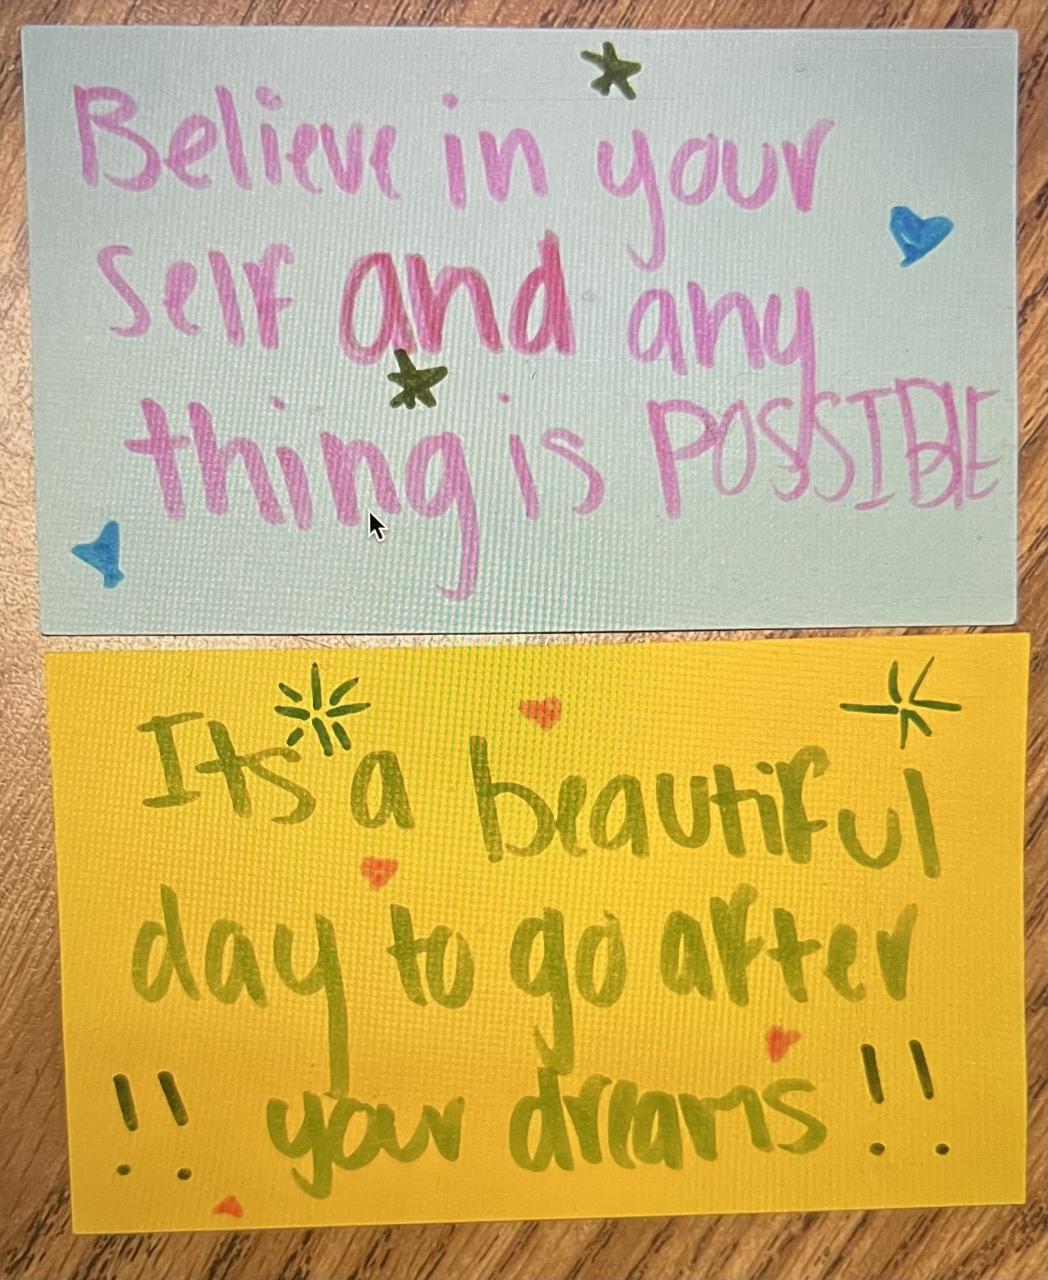 Believe in your
self and any
thing is POSSIBLE
Its a beautiful
day to go after
!! your dreams !!